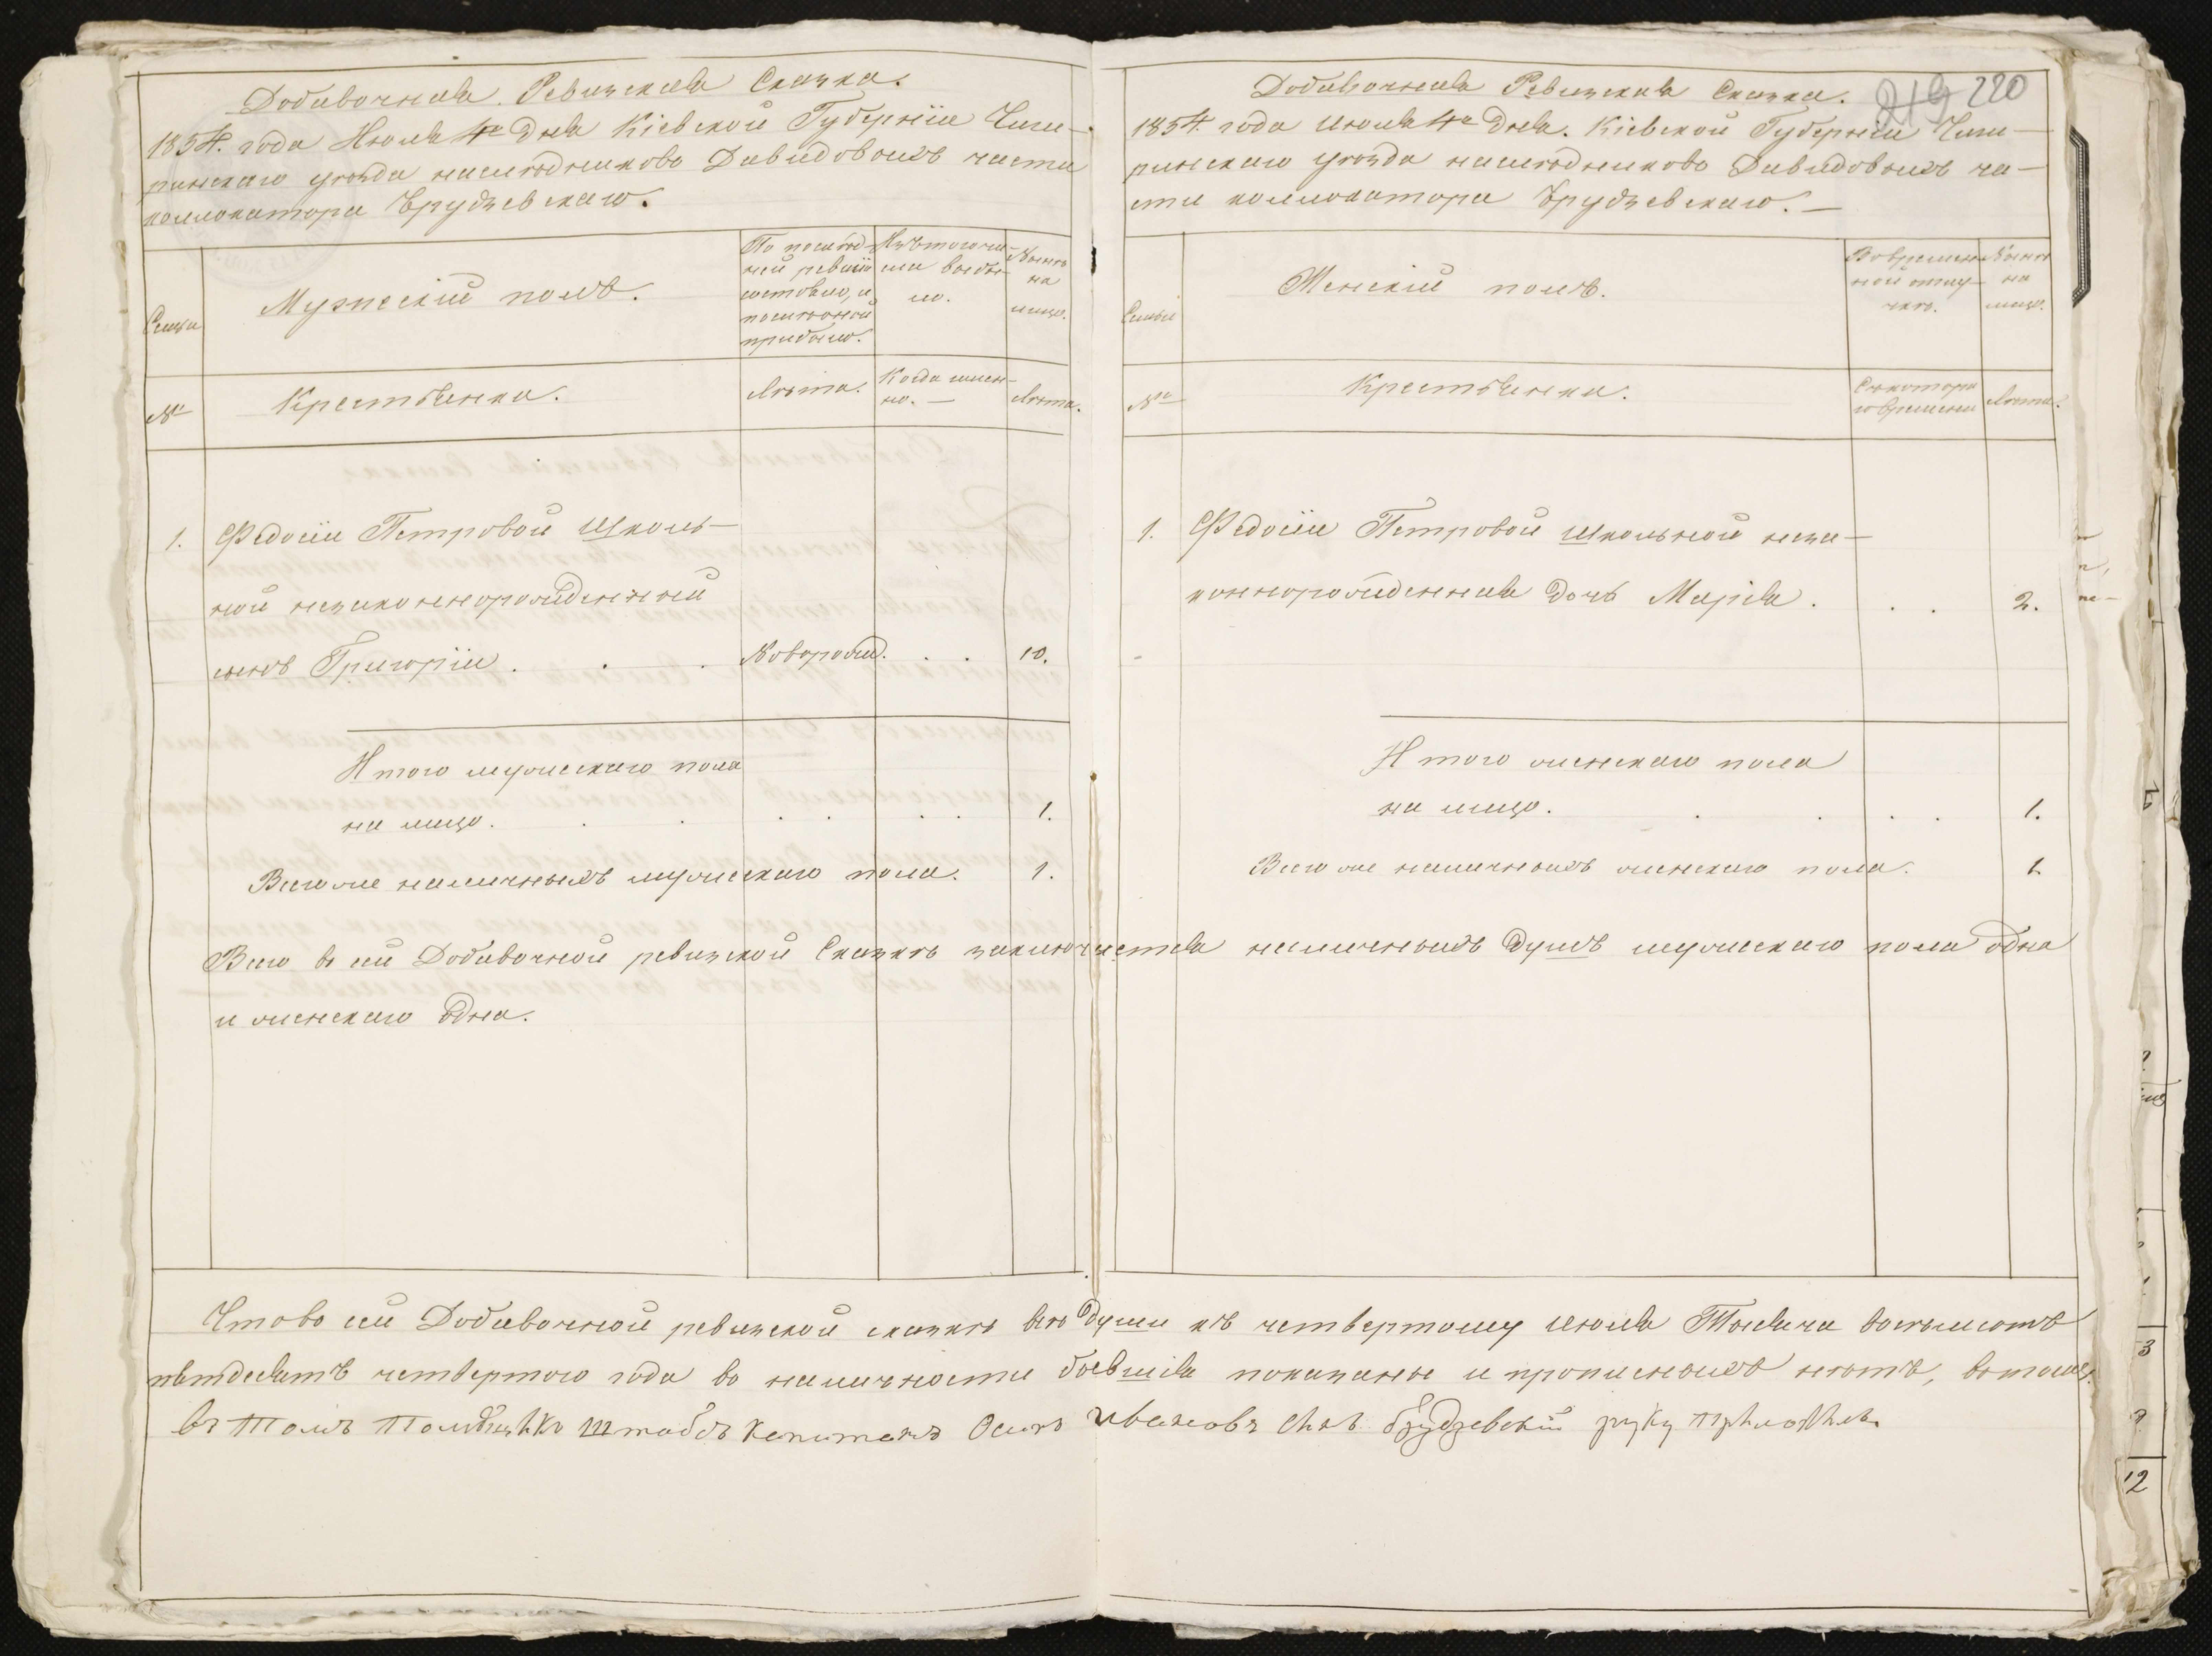 Добавочная Ревизская Сказка.
1854. года Июля 4го Дня Кіевской Губерніи Чиги-
ринскаго уѣзда наслѣдниковъ Давидовыхъ части
коллокатора Брудзевскаго.
Семьи
Мужескій полъ.
По послѣд-
ней ревизіи
состояло, и
послѣ оной
прибыло.
Изъ того чи-
сла выбы-
ло.
Нынѣ
на
лицо.
№
Крестьянка.
Лѣта.
Когда имен-
но. —
Лѣта.
1. Федосіи Петровой Школь-
ной незаконнорожденный
сынъ Григорій . . . Новорожд. . . 10.
Итого мужескаго пола
на лицо. . . . . . . 1.
Всего же наличныхъ мужескаго пола. 1.
Добавочная Ревизская Сказка.
219 220
1854. года Июля 4го Дня. Кіевской Губерніи Чиги-
ринскаго уѣзда наслѣдниковъ Давидовыхъ ча-
сти коллокатора Брудзевскаго. —
Семьи
Женскій полъ.
Во времен-
ной отлу-
чкѣ.
Нынѣ
на
лицо.
№
Крестьянка.
Съ котора-
го времени
Лѣта.
1. Федосіи Петровой Школьной неза-
коннорожденная дочь Марія . . . 2.
Итого женскаго пола
на лицо. . . . . 1.
Всего же наличныхъ женскаго пола. 1.
Всего въ сей Добавочной ревизской Сказкѣ заключается наличныхъ Душъ мужескаго пола одна
и женскаго Одна.
Что въ сей Добавочной ревизской сказкѣ всѣ души къ четвертому Июля Тысяча восемьсотъ
пятдесятъ четвертого года въ наличности бывшія показаны и прописныхъ нѣтъ,
въ Томъ Помѣщикъ штабсъ Капитанъ Осипъ Ивановъ Сынъ Брудзевскій руку Приложилъ